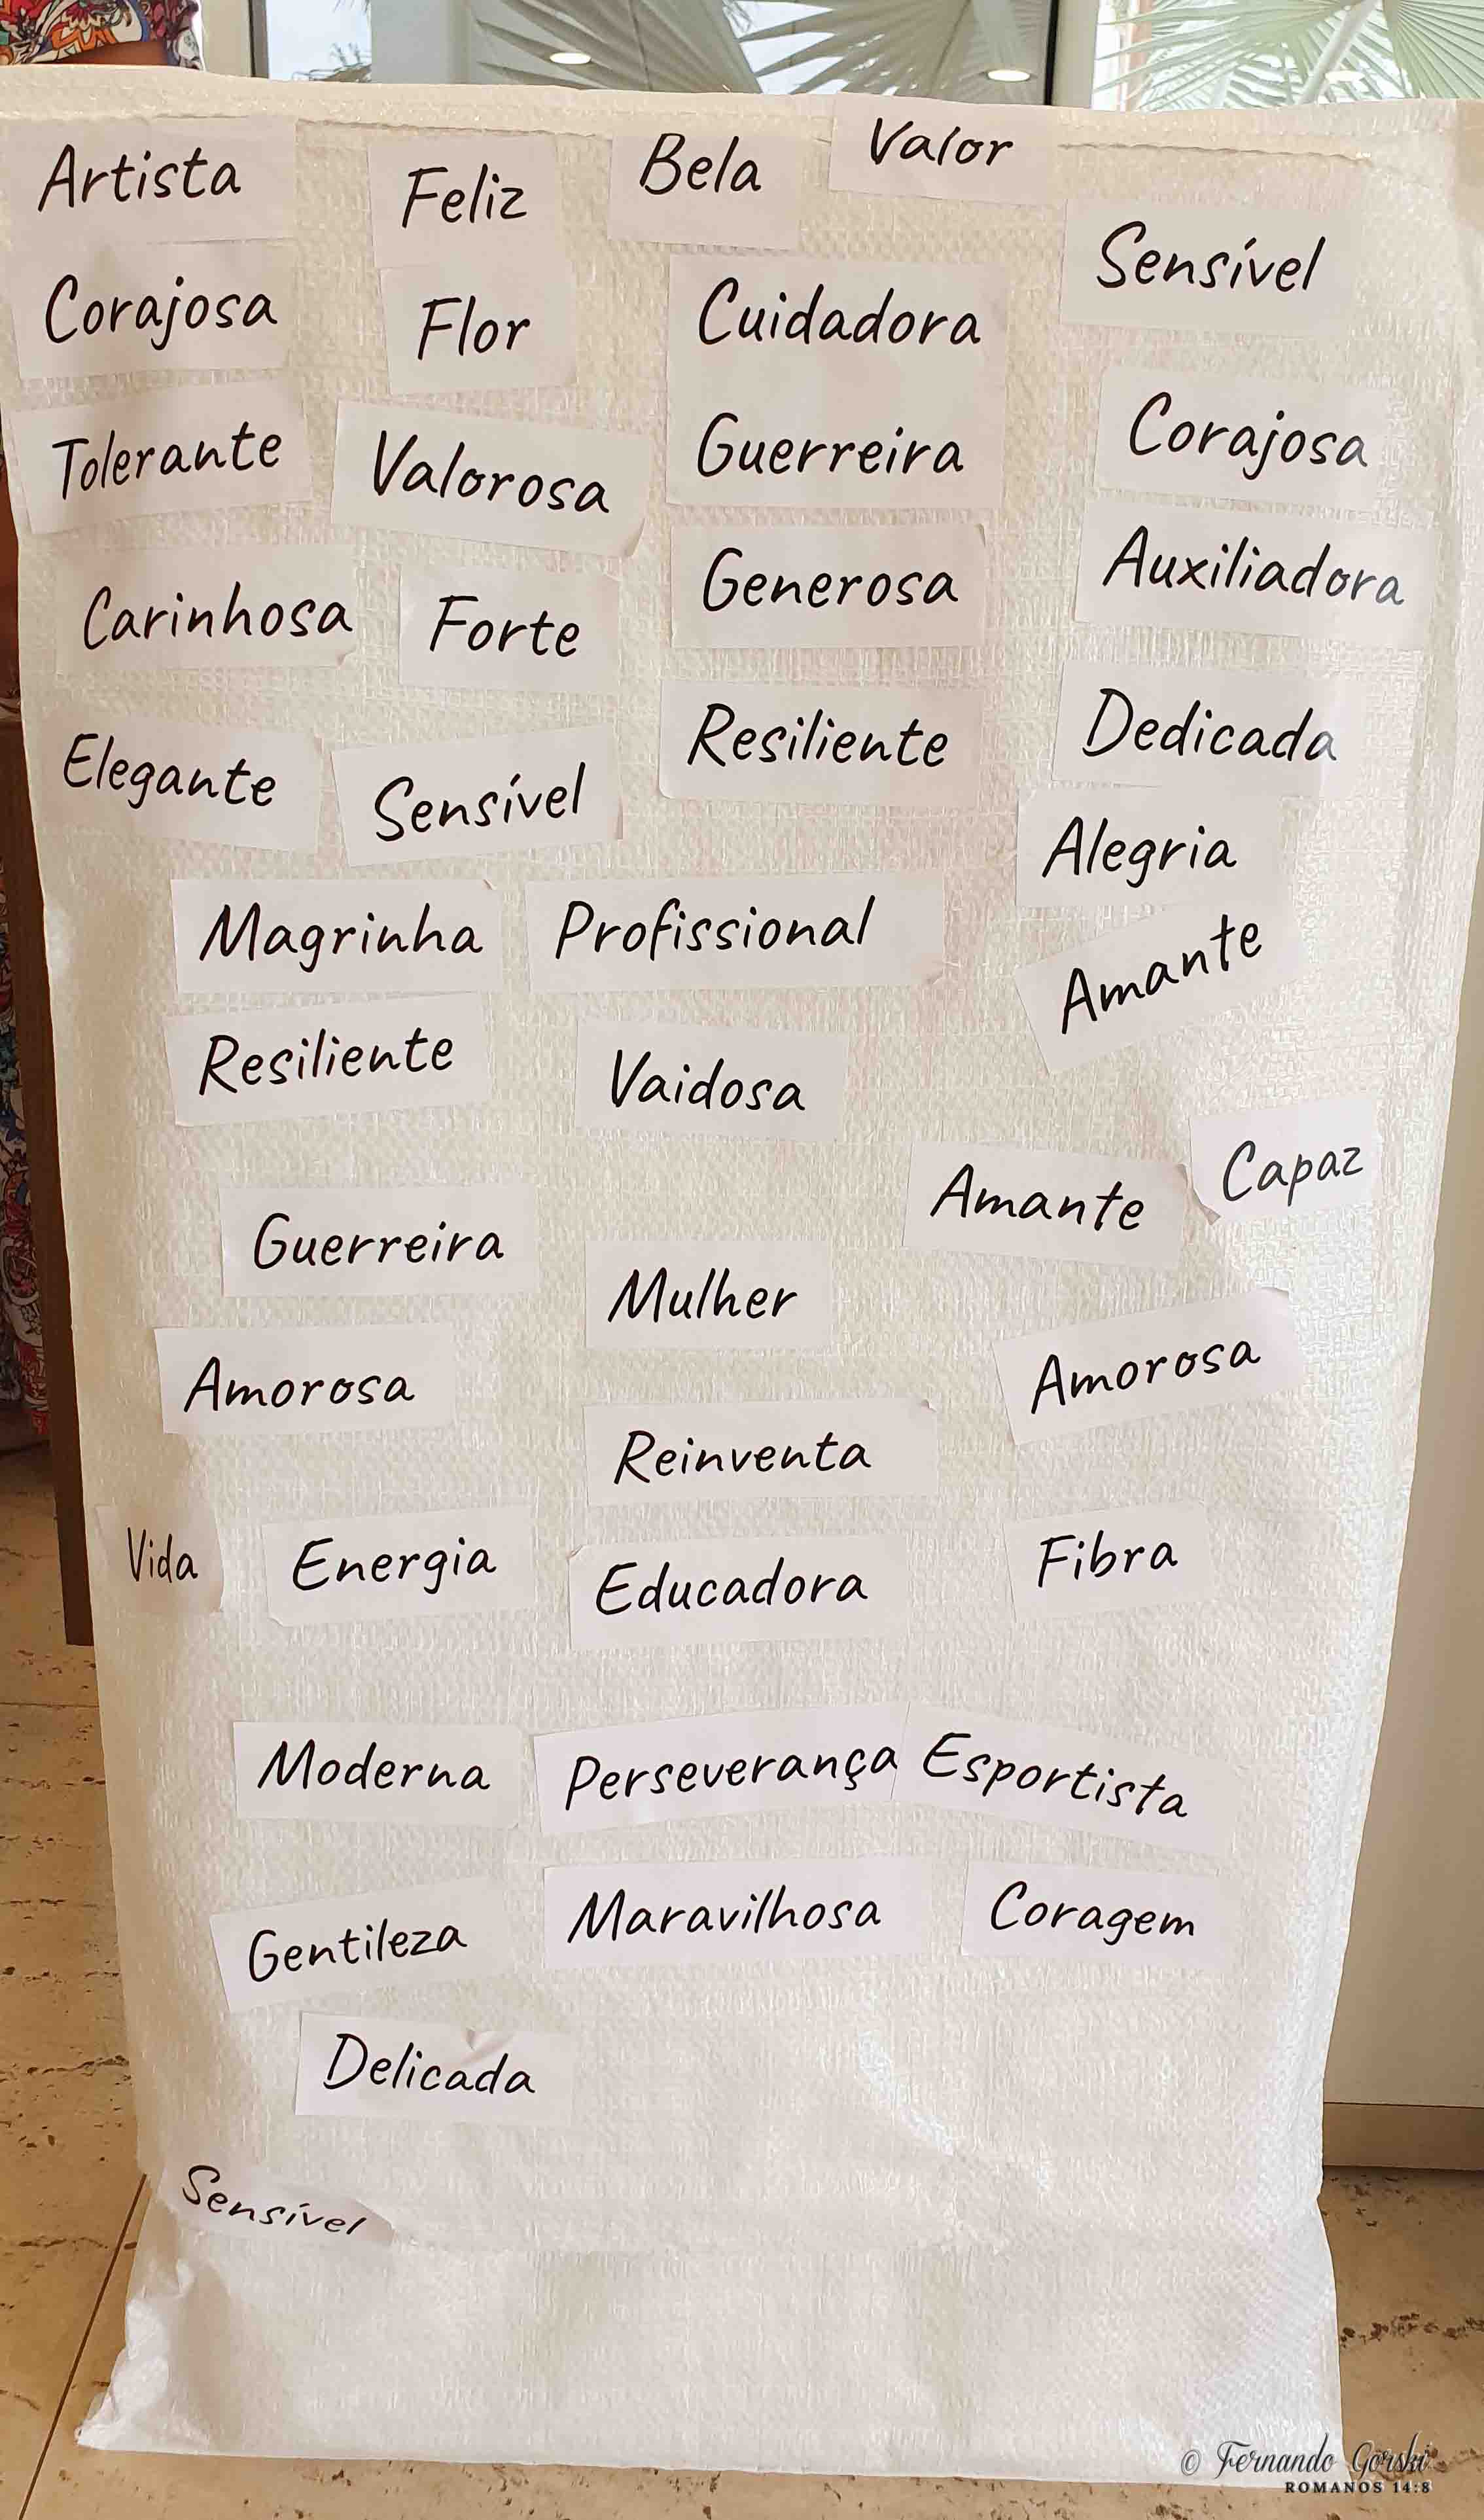 Artista
Feliz
Bela
Valor
Sensível
Corajosa
Flor
Cuidadora
Corajosa
Tolerante
Valorosa
Guerreira
Auxiliadora
Carinhosa
Forte
Generosa
Dedicada
Elegante
Sensível
Resiliente
Alegria
Magrinha
Profissional
Amante
Resiliente
Vaidosa
Amante
Capaz
Guerreira
Mulher
Amorosa
Amorosa
Reinventa
Vida
Energia
Educadora
Fibra
Moderna
Perseverança
Esportista
Gentileza
Maravilhosa
Coragem
Delicada
Sensível
© Fernando Gorski
ROMANOS 14:8